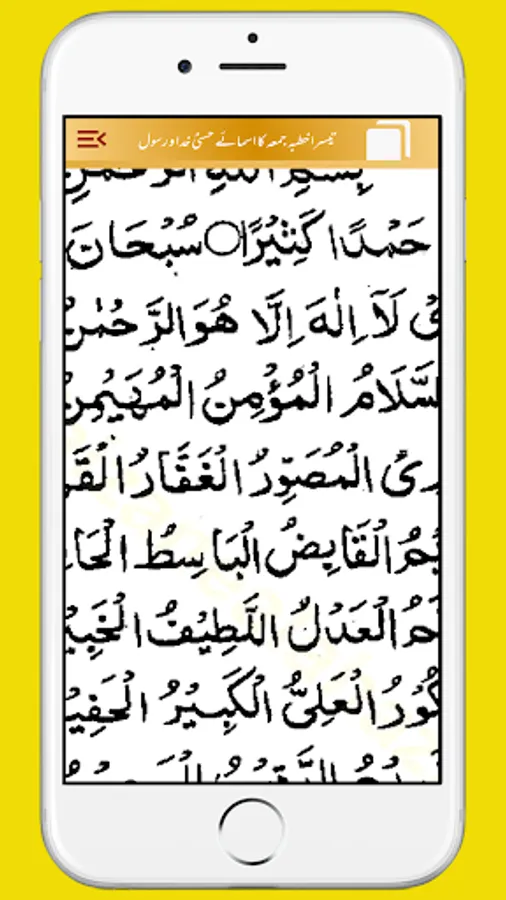 تیسرا خطبہ جمعہ کا اسمائے حسنیٰ خدا و رسول
بِسْمِ اللّٰهِ الرَّحْمٰنِ
حَمْدًا كَثِيْرًا○سُبْحَانَ
لَآ اِلٰهَ اِلَّا هُوَ الرَّحْمٰنُ
السَّلَامُ الْمُؤْمِنُ الْمُهَيْمِنُ
رِىُ الْمُصَوِّرُ الْغَفَّارُ الْقَ
يْمُ الْقَابِضُ الْبَاسِطُ الْخَا
الْعَدْلُ اللَّطِيْفُ الْخَبِيْ
كُوْرُ الْعَلِىُّ الْكَبِيْرُ الْحَفِيْ